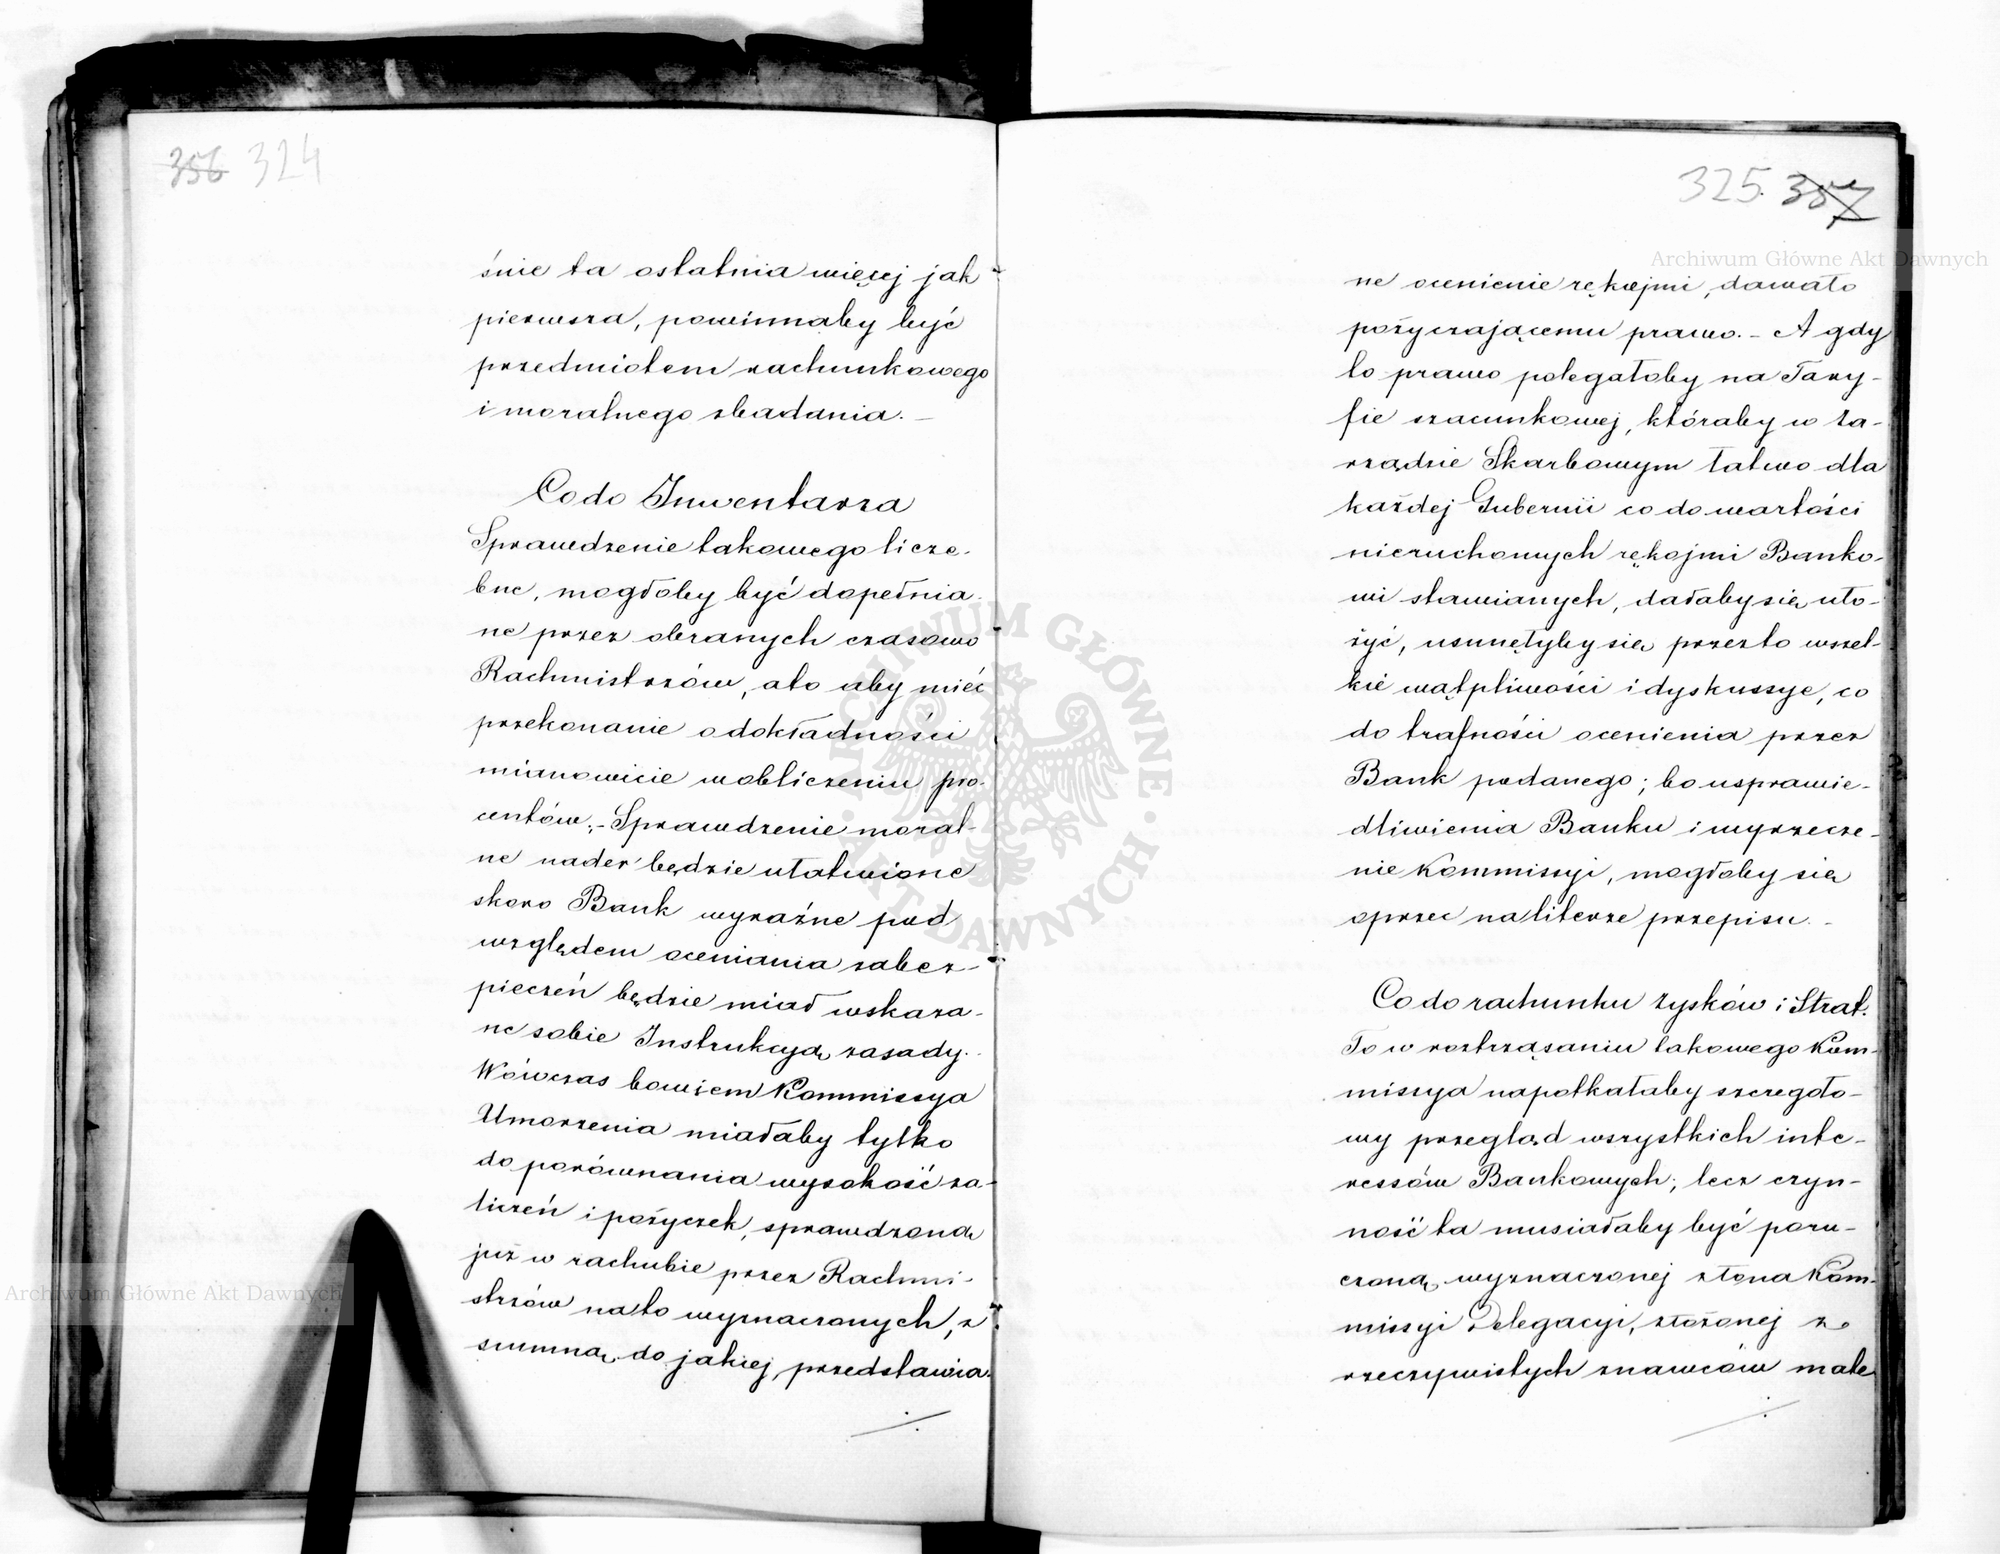 356 324
śnie ta ostatnia więcej jak
pierwsza, powinnaby być
przedmiotem rachunkowego
i moralnego zbadania. —
Co do Inwentarza
Sprawdzenie takowego licze-
bne, mogłoby być dopełnia-
ne przez obranych czasowo
Rachmistrzów, a to aby mieć
przekonanie o dokładności
mianowicie w obliczeniu pro-
centów; - Sprawdzenie moral-
ne nader będzie ułatwione
skoro Bank wyraźne pod
względem oceniania zabez-
pieczeń będzie miał wskaza-
ne sobie Instrukcyą zasady.
Wówczas bowiem Kommissya
Umorzenia miałaby tylko
do porównania wysokość za-
liczeń i pożyczek, sprawdzoną
już w rachubie przez Rachmi-
strzów na to wyznaczonych, z
summą do jakiej przedstawia-
325. 357
ne ocenienie rękojmi, dawało
pożyczającemu prawo. - A gdy
to prawo polegałoby na Tary-
fie szacunkowej, któraby w Za-
rządzie Skarbowym łatwo dla
każdej Gubernii co do wartości
nieruchomych rękojmi Banko-
wi stawianych, dałaby się uło-
żyć, usunęłyby się przez to wszel-
kie wątpliwości i dyskussye, co
do trafności ocenienia przez
Bank podanego; bo usprawie-
dliwienia Banku i wyrzecze-
nie Kommissyi, mogłoby się
oprzeć na literze przepisu. -
Co do rachunku Zysków i Strat.
To w roztrząsaniu takowego Kom-
missya napotkałaby szczegóło-
wy przegląd wszystkich inte-
ressów Bankowych; lecz czyn-
ność ta musiałaby być poru-
czoną wyznaczonej z łona Kom-
missyi Delegacyi, złożonej z
rzeczywistych znawców mate
Archiwum Główne Akt Dawnych
Archiwum Główne Akt Dawnych
ARCHIWUM GŁÓWNE · AKT DAWNYCH ·